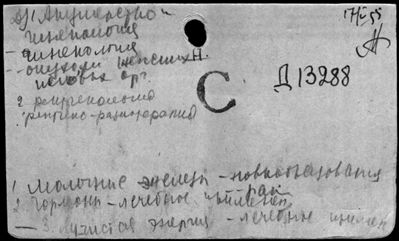 Акушерство и
гинекология
гинекология
опухоли женских
половых орг.
2 рентгенология
рентгено-радиотерапия
С
Д 13288
1 Молочные железы - новообразования
рак
2 Гормоны - лечебное примен
3. Лучистая энергия - лечебное примен